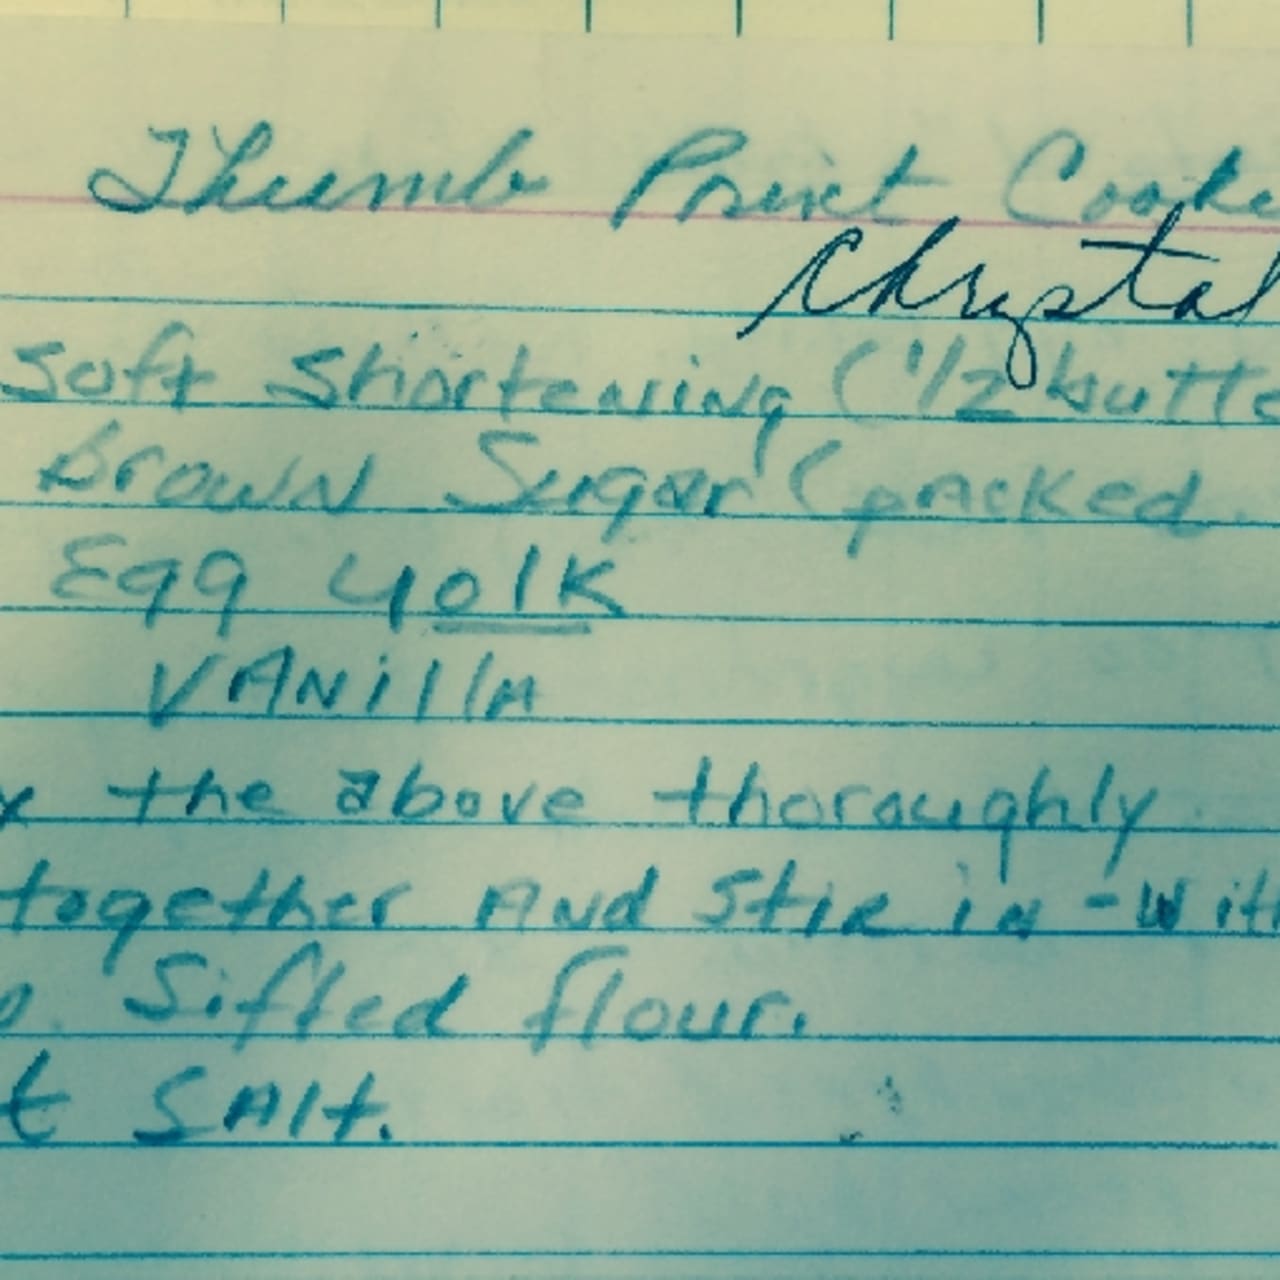 Thumb Print Cooke
Chrystal
Soft Shortening (1/2 butte
Brown Sugar (packed
Egg yolk
VANilla
x the above thoroughly
together And Stir in - with
p. Sifted flour.
t SAlt.